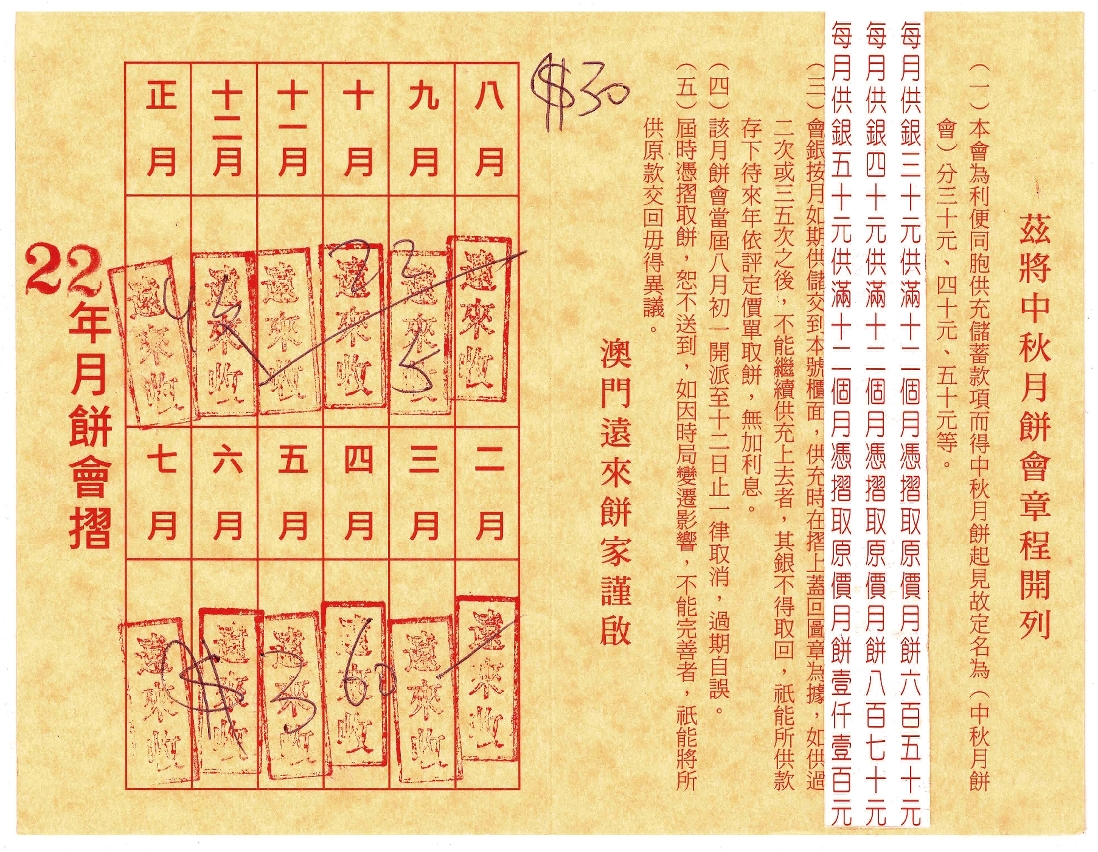 茲將中秋月餅會章程開列
（一）本會為利便同胞供充儲蓄款項而得中秋月餅起見故定名為（中秋月餅
會）分三十元、四十元、五十元等。
每月供銀三十元供滿十二個月憑摺取原價月餅六百五十元
每月供銀四十元供滿十二個月憑摺取原價月餅八百七十元
每月供銀五十元供滿十二個月憑摺取原價月餅壹仟壹百元
（三）會銀按月如期供儲交到本號櫃面，供充時在摺上蓋回圖章為據，如供過
二次或三五次之後，不能繼續供充上去者，其銀不得取回，祇能所供款
存下待來年依評定價單取餅，無加利息。
（四）該月餅會當屆八月初一開派至十二日止一律取消，過期自誤。
（五）屆時憑摺取餅，恕不送到，如因時局變遷影響，不能完善者，祇能將所
供原款交回毋得異議。
澳門遠來餅家謹啟
$30
八月
九月
十月
十一月
十二月
正月
遠來收
遠來收
遠來收
遠來收
遠來收
遠來收
二月
三月
四月
五月
六月
七月
遠來收
遠來收
遠來收
遠來收
遠來收
遠來收
$360
22年月餅會摺